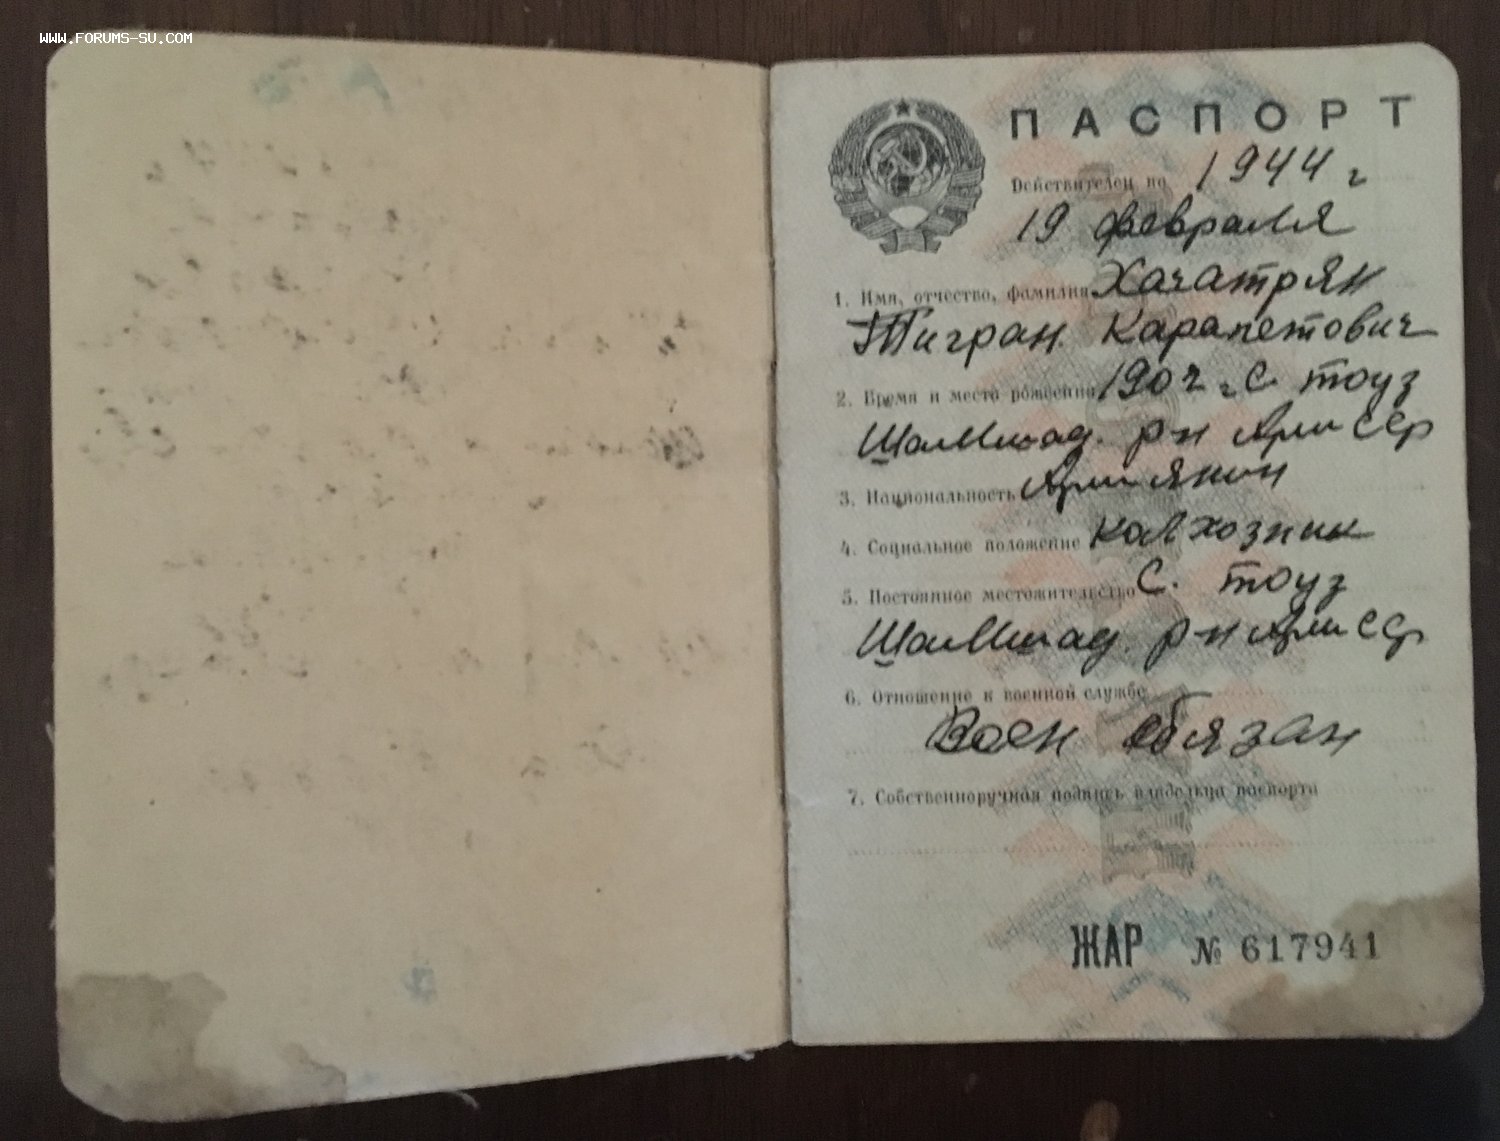 WWW.FORUMS-SU.COM
ПАСПОРТ
Действителен по 1944 г
19 февраля
1. Имя, отчество, фамилия Хачатрян
Тигран Карапетович
2. Время и место рождения 1904 г. С. Тоуз
Шамшад. р-н Арм ССР
3. Национальность Армянин
4. Социальное положение колхозник
5. Постоянное местожительство С. Тоуз
Шамшад. р-н Арм ССР
6. Отношение к военной службе
Воен обязан
7. Собственноручная подпись владельца паспорта
ЖАР № 617941